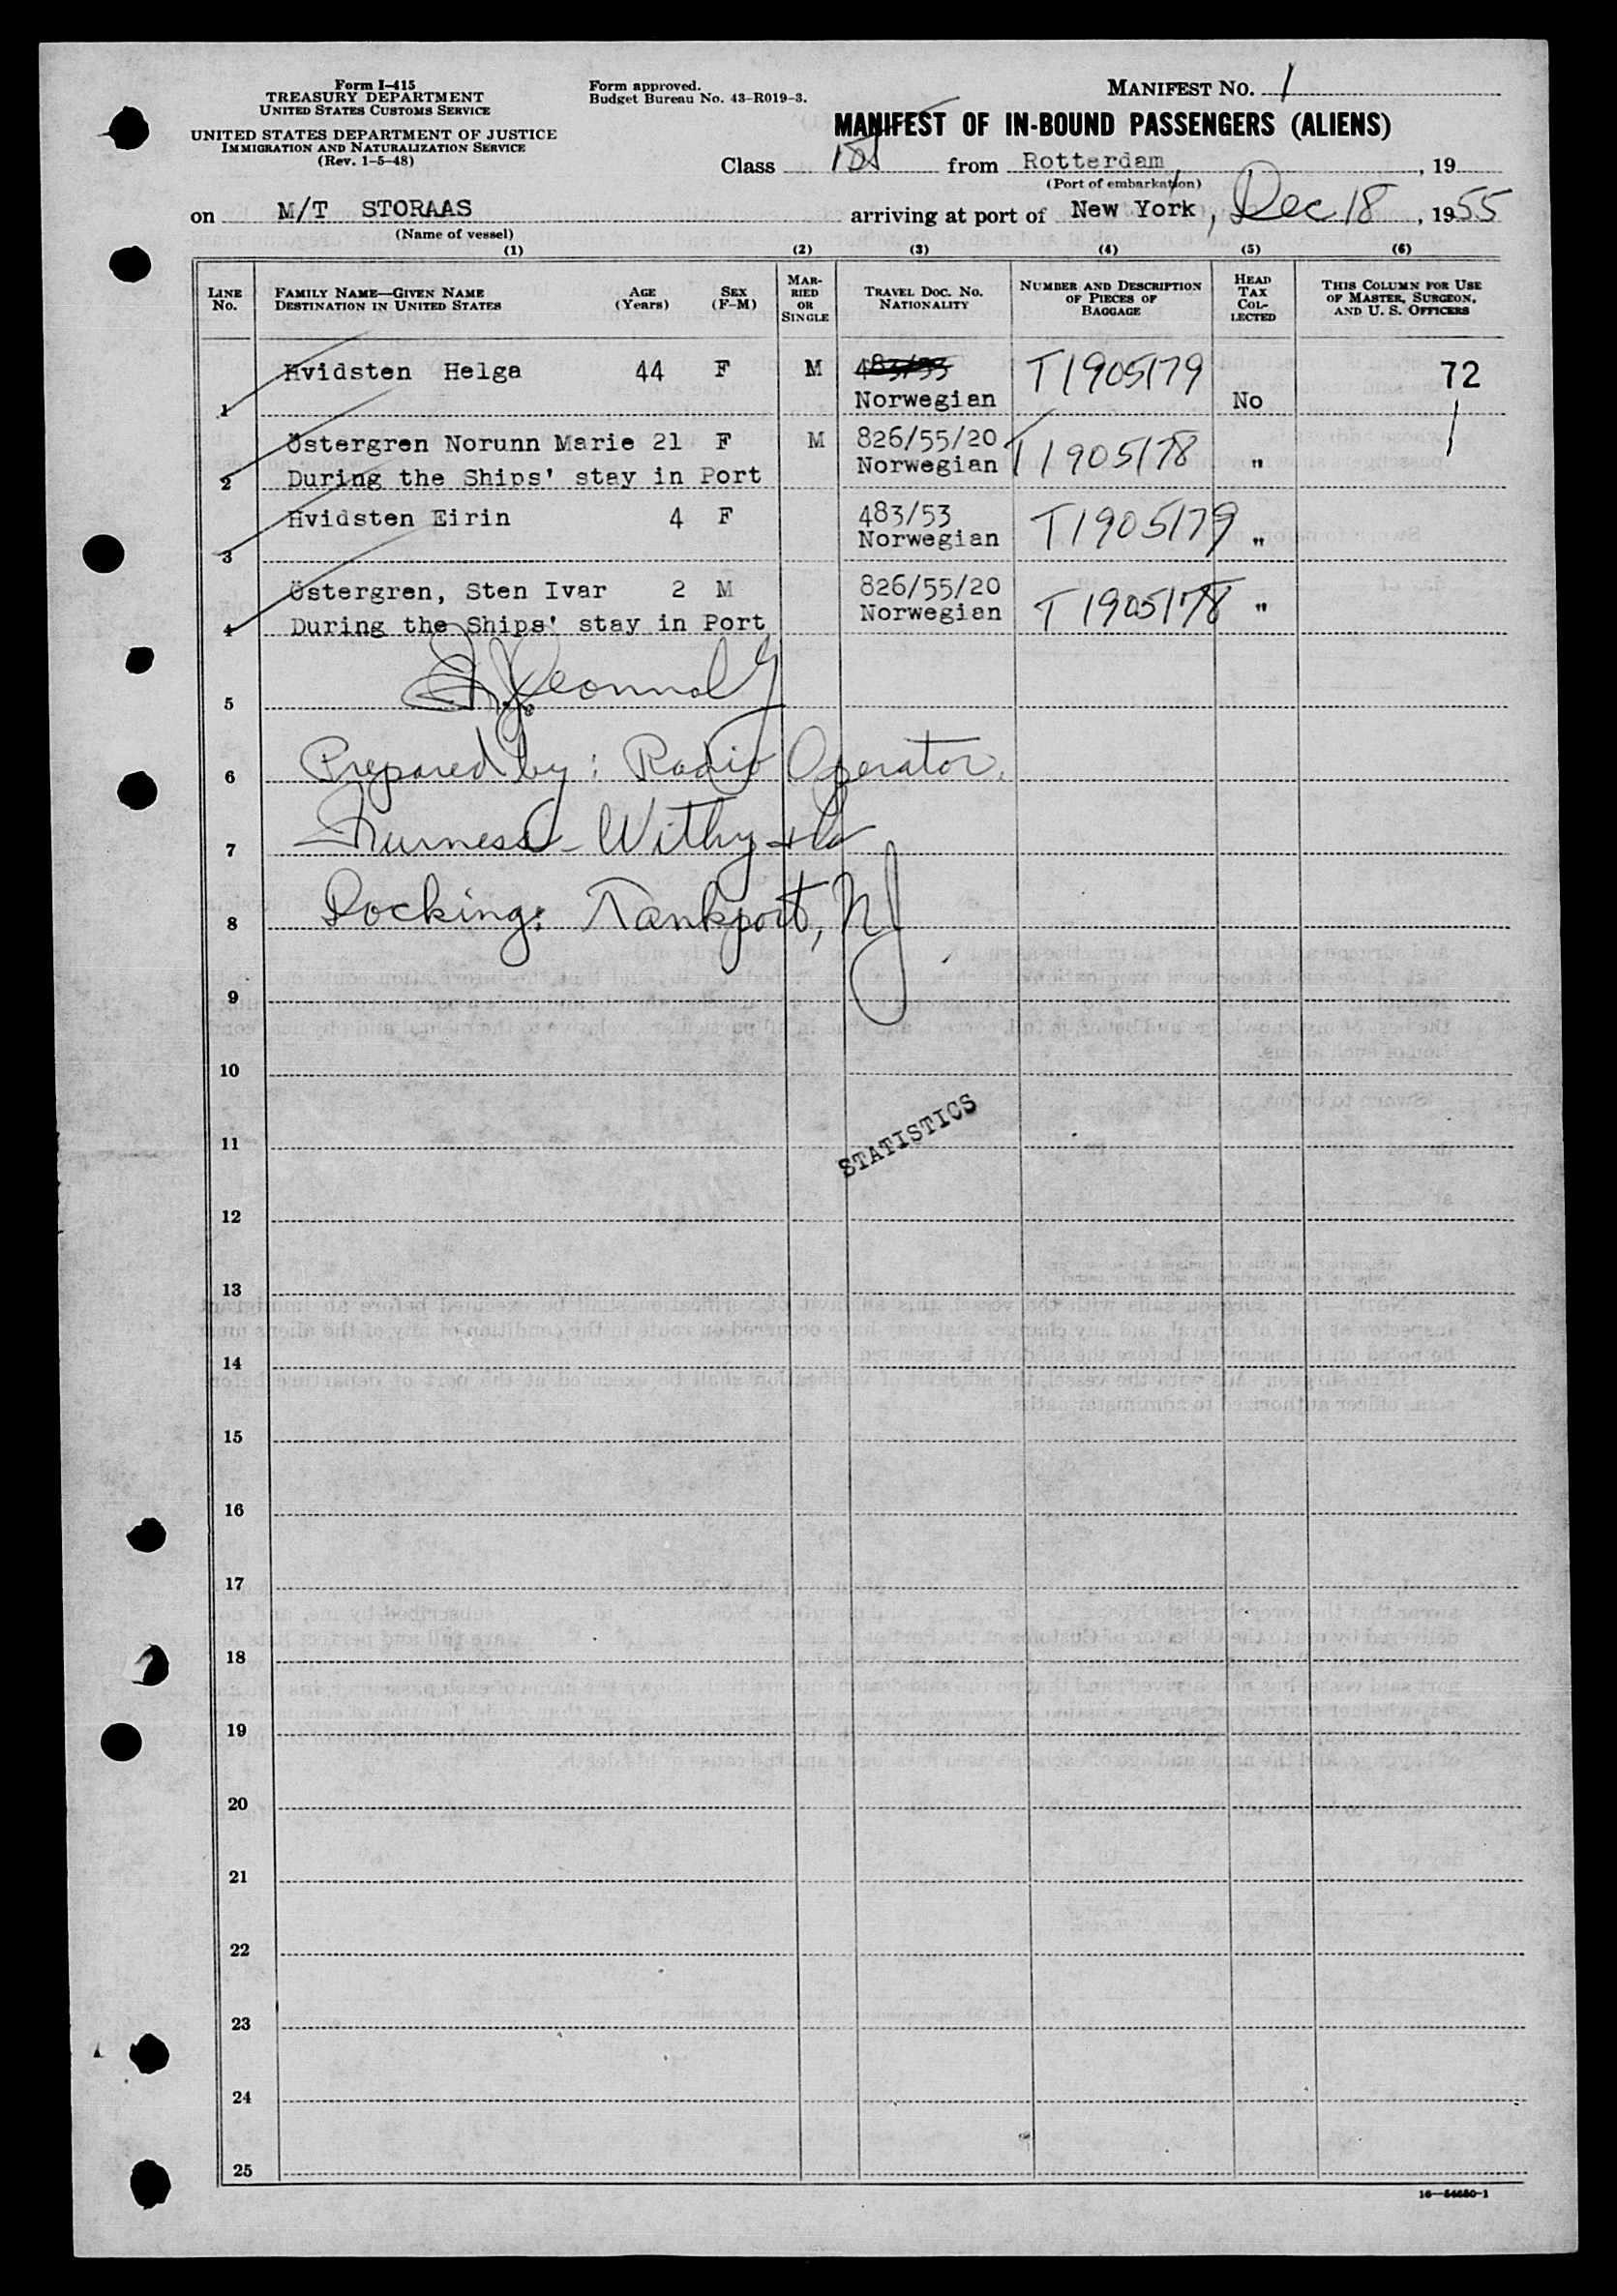 Form I-415
TREASURY DEPARTMENT
UNITED STATES CUSTOMS SERVICE
UNITED STATES DEPARTMENT OF JUSTICE
IMMIGRATION AND NATURALIZATION SERVICE
(Rev. 1-5-48)
Form approved.
Budget Bureau No. 43-R019-3.
MANIFEST NO. 1
MANIFEST OF IN-BOUND PASSENGERS (ALIENS)
Class 1st from Rotterdam, 19
(Port of embarkation)
on M/T STORAAS arriving at port of New York, Dec 18, 1955
(Name of vessel)
(1) (2) (3) (4) (5) (6)
LINE No.
FAMILY NAME—GIVEN NAME
DESTINATION IN UNITED STATES
AGE (Years)
SEX (F-M)
MARRIED OR SINGLE
TRAVEL DOC. NO. NATIONALITY
NUMBER AND DESCRIPTION OF PIECES OF BAGGAGE
HEAD TAX COLLECTED
THIS COLUMN FOR USE OF MASTER, SURGEON, AND U. S. OFFICERS
Hvidsten Helga 44 F M 483/53 T1905179 72
1 Norwegian No
Östergren Norunn Marie 21 F M 826/55/20 T1905178 1
2 During the Ships' stay in Port Norwegian "
Hvidsten Eirin 4 F 483/53 T1905179
3 Norwegian "
Östergren, Sten Ivar 2 M 826/55/20 T1905178
4 During the Ships' stay in Port Norwegian "
5
6 Prepared by: Radio Operator.
7 Furness-Withy & Co
8 Docking: Tankport, NJ
9
10
11 STATISTICS
12
13
14
15
16
17
18
19
20
21
22
23
24
25
16—54680-1